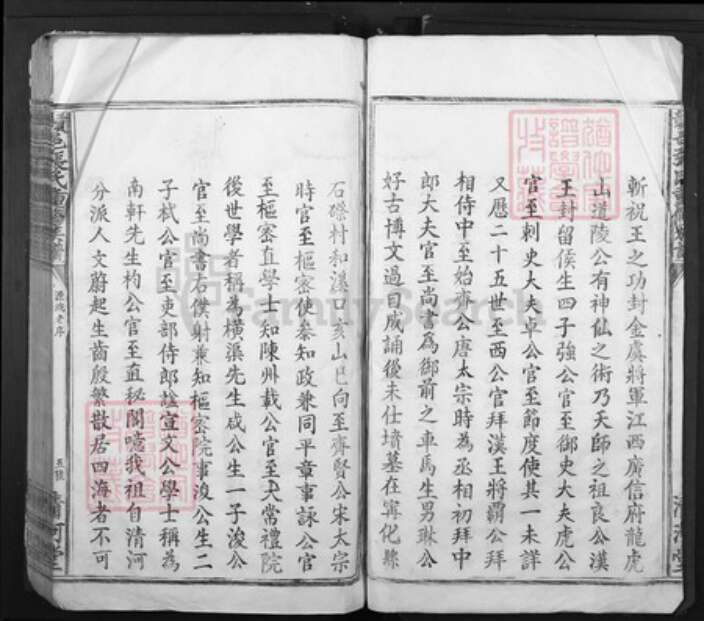 斬祝王之功封金虞將軍江西廣信府龍虎
山道陵公有神仙之術乃天師之祖良公漢
王封留侯生四子強公官至御史大夫虎公
官至刺史大夫卓公官至節度使其一未詳
又歷二十五世至西公官拜漢王將霸公拜
相侍中至始齊公唐太宗時為丞相初拜中
郎大夫官至尚書為御前之車馬生男琳公
好古博文過目成誦後未仕墳墓在寧化縣
石磜村和溪口亥山巳向至齊賢公宋太宗
時官至樞密使叅知政兼同平章事詠公官
至樞密直學士知陳州載公官至天常禮院
後世學者稱為橫溪先生咸公生一子浚公
官至尚書右僕射兼知樞密院事浚公生二
子栻公官至吏部侍郎諡宣文公學士稱為
南軒先生杓公官至直秘閣噫我祖自清河
分派人文蔚起生齒殷繁散居四海者不可
源流老序
五號
清河堂
FamilySearch